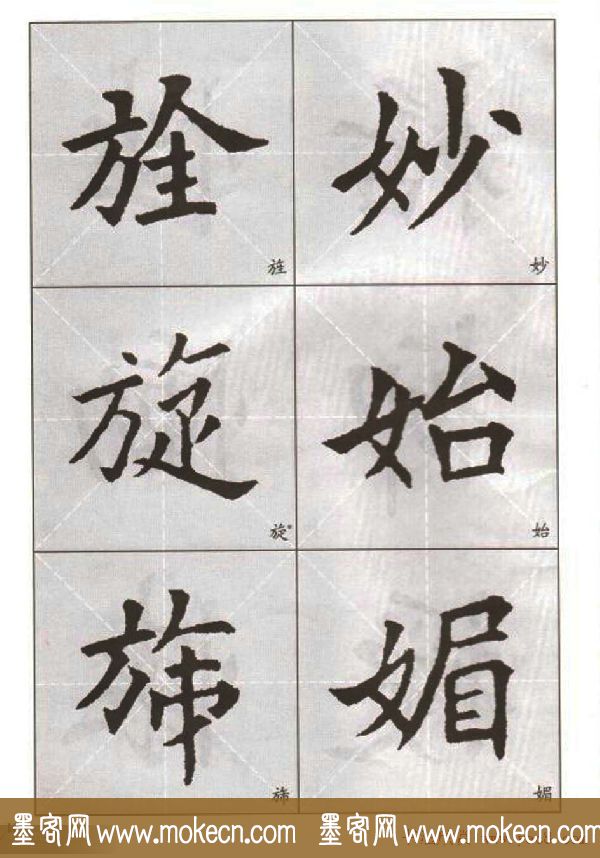 妙
妙
始
始
媚
媚
旌
旌
旋
旋
旆
旆
墨客网 www.mokecn.com 墨客网 www.mokecn.com